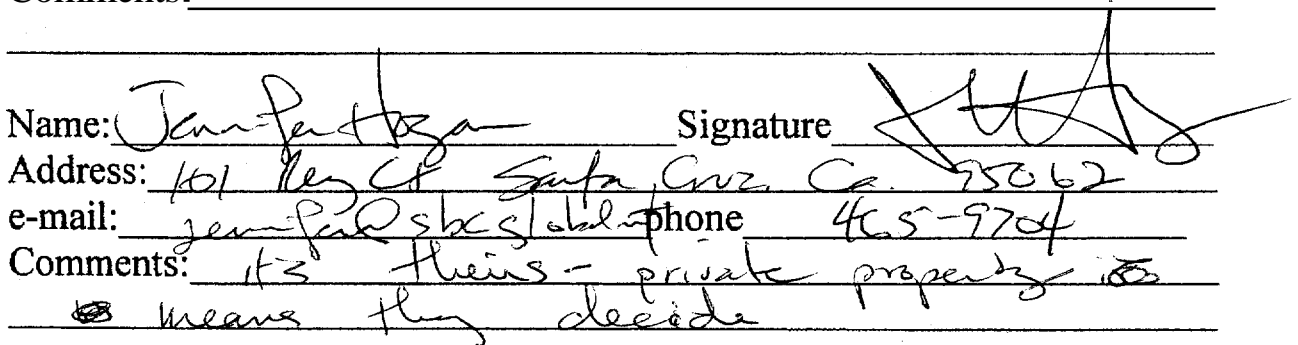 Comments:
Name: Jennifer Hogan Signature
Address: 101 Rey Ct Santa Cruz, Ca. 95062
e-mail: phone 465-9704
Comments: it's theirs - private property
means they decide